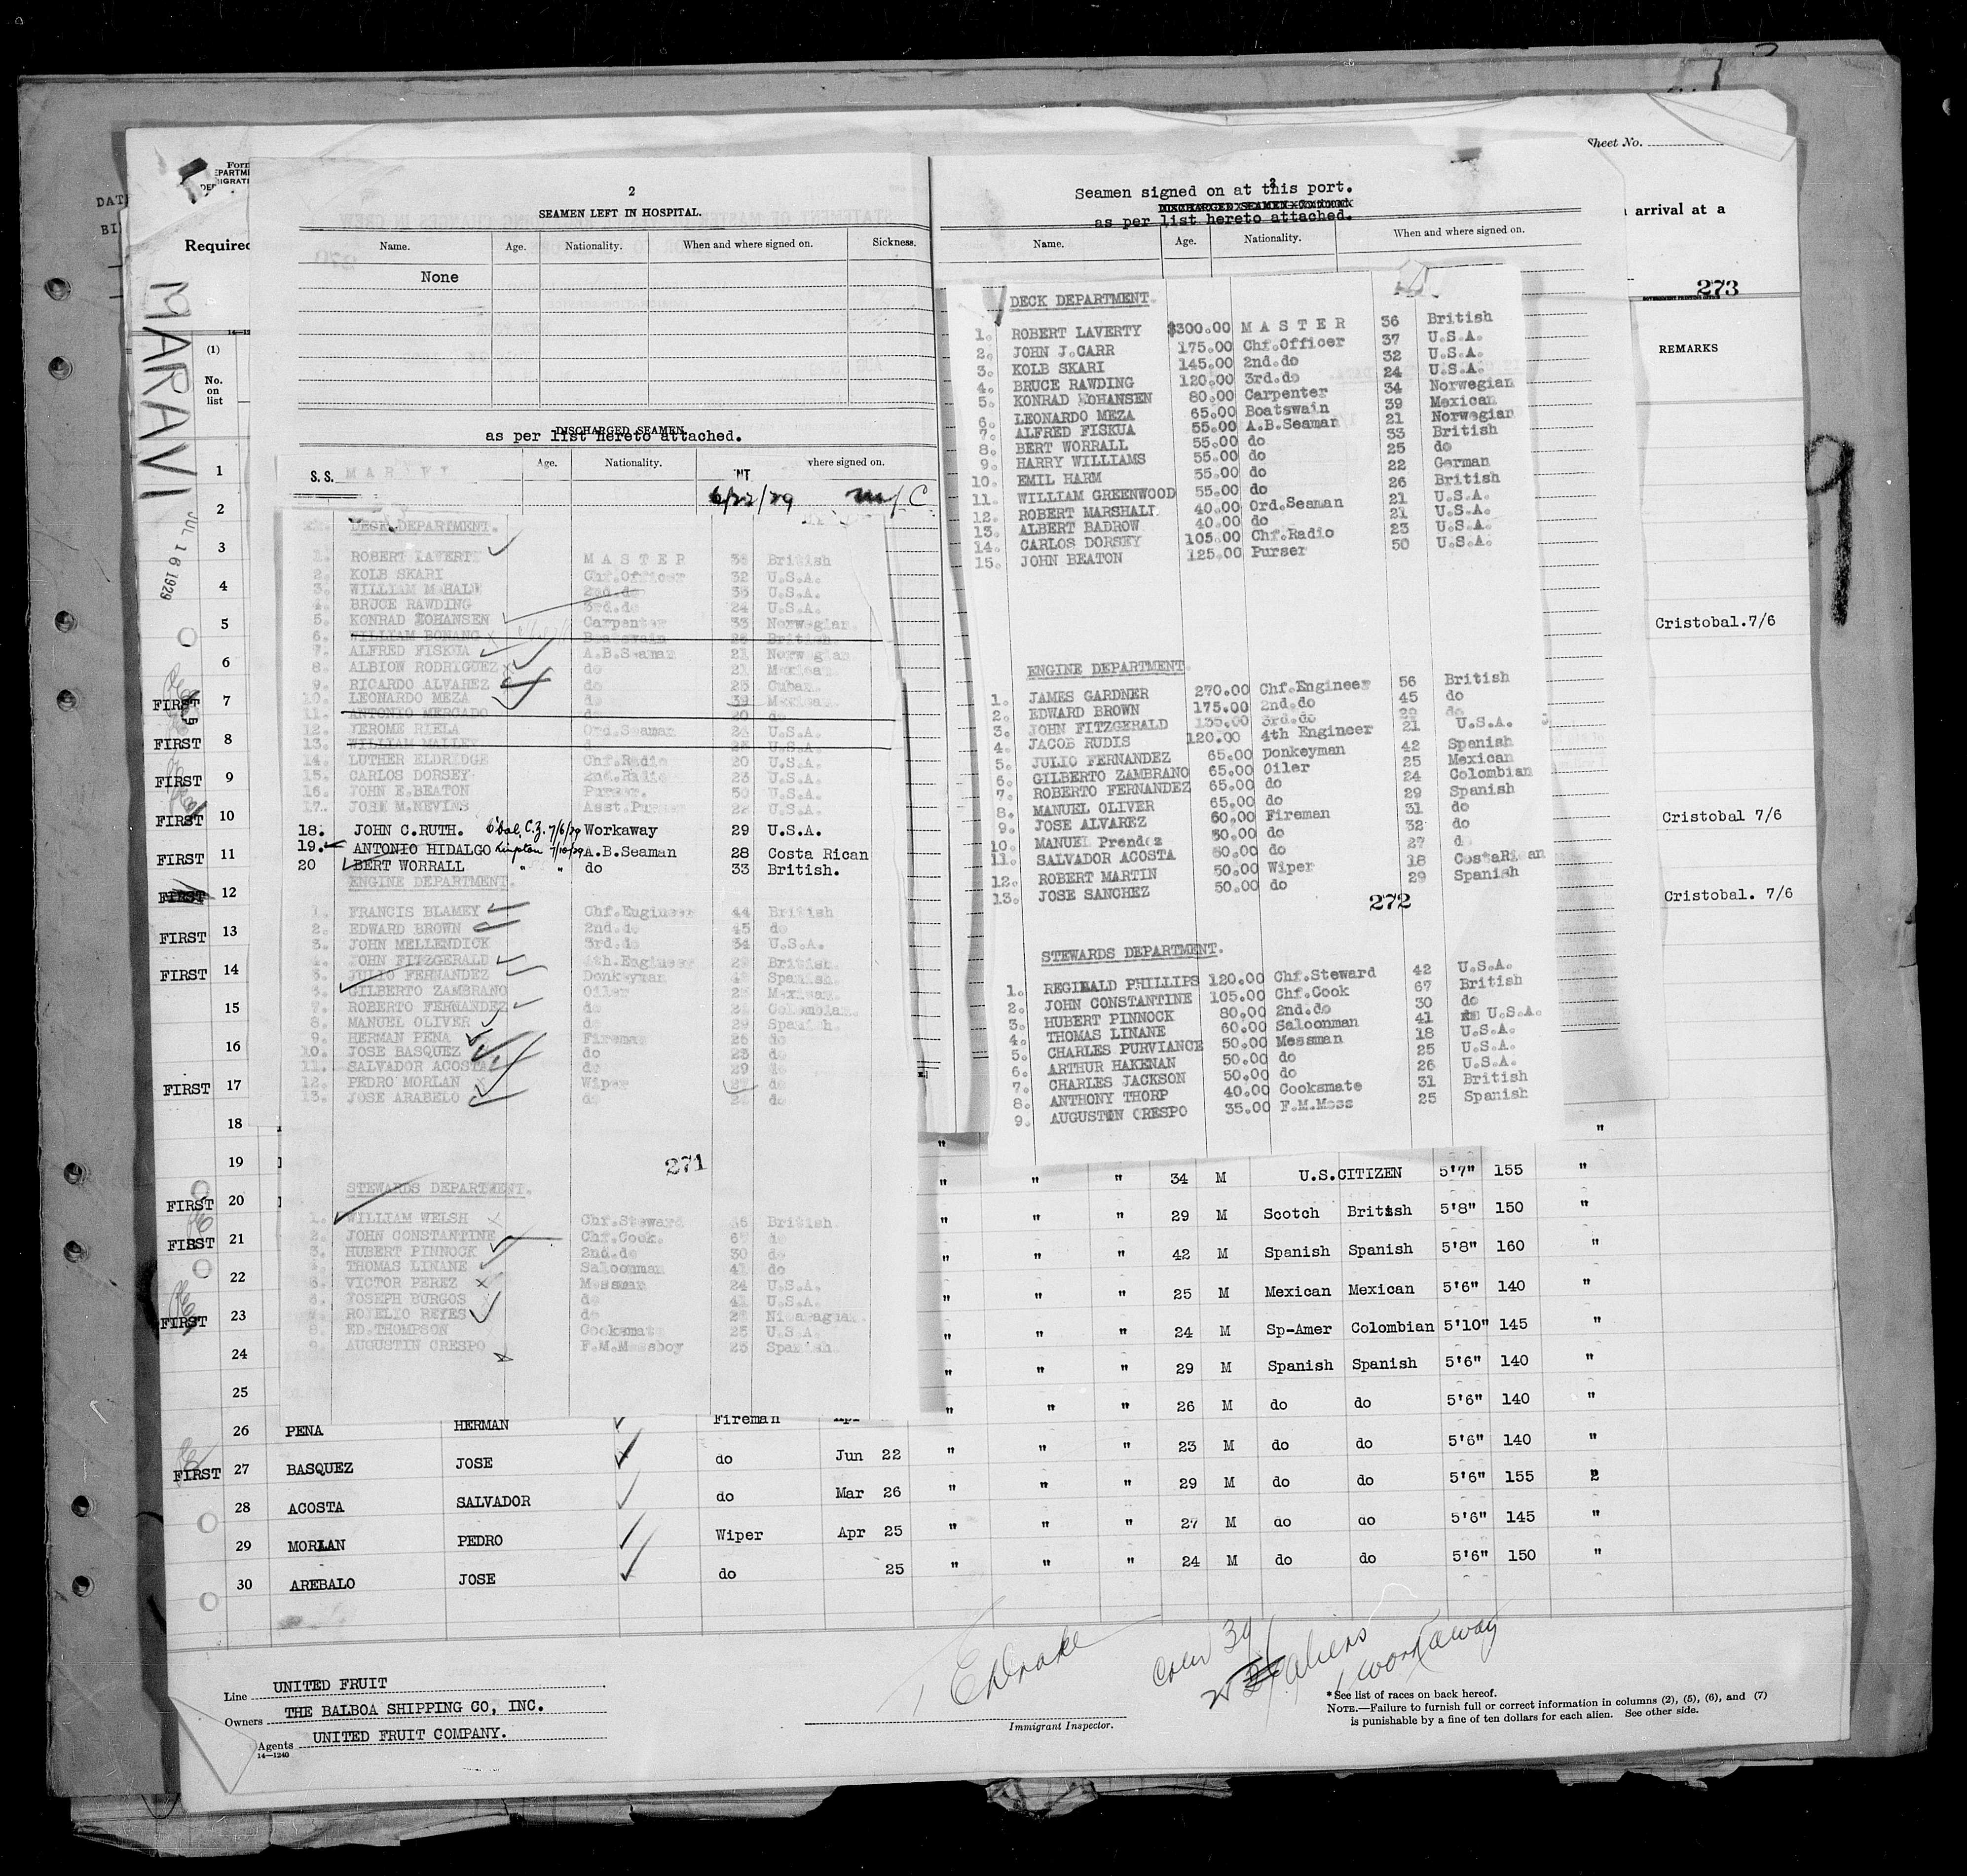 Sheet No.
Required
arrival at a
273
MARAVI
JUL 16 1929
(1)
No.
on
list
REMARKS
2
SEAMEN LEFT IN HOSPITAL.
Name. Age. Nationality. When and where signed on. Sickness.
None
DISCHARGED SEAMEN
as per list hereto attached.
S.S. Age. Nationality. where signed on.
6/22/29
DECK DEPARTMENT.
1. ROBERT LAVERTY MASTER 36 British
2. KOLB SKARI Chf.Officer 32 U.S.A.
3. WILLIAM MCHALE 2nd.do 36 U.S.A.
4. BRUCE RAWDING 3rd.do 24 U.S.A.
5. KONRAD JOHANSEN Carpenter 33 Norwegian.
6. WILLIAM BONANG Boatswain British
7. ALFRED FISKUA A.B.Seaman 21 Norwegian
8. ALBION RODRIGUEZ do 21 Mexican
9. RICARDO ALVAREZ do 23 Cuban.
10. LEONARDO MEZA do 39 Mexican.
11. ANTONIO MERCADO do 20 do
12. JEROME RIELA Ord.Seaman 24 U.S.A.
13. WILLIAM MALLEY do U.S.A.
14. LUTHER ELDRIDGE Chf.Radio 20 U.S.A.
15. CARLOS DORSEY 2nd.Radio 23 U.S.A.
16. JOHN E.BEATON Purser. 50 U.S.A.
17. JOHN M.NEVINS Asst.Purser 22 U.S.A.
18. JOHN C.RUTH. C'bal, C.Z. 7/6/29 Workaway 29 U.S.A.
19. ANTONIO HIDALGO Kingston 7/10/29 A.B.Seaman 28 Costa Rican
20 BERT WORRALL " " do 33 British.
ENGINE DEPARTMENT.
1. FRANCIS BLAMEY Chf.Engineer 44 British
2. EDWARD BROWN 2nd.do 45 do
3. JOHN MELLENDICK 3rd.do 34 U.S.A.
4. JOHN FITZGERALD 4th.Engineer 29 British.
5. JULIO FERNANDEZ Donkeyman 42 Spanish.
6. GILBERTO ZAMBRANO Oiler 25 Mexican.
7. ROBERTO FERNANDEZ do 24 Colombian.
8. MANUEL OLIVER do 29 Spanish.
9. HERMAN PENA Fireman 26 do
10. JOSE BASQUEZ do 23 do
11. SALVADOR ACOSTA do 29 do
12. PEDRO MORLAN Wiper 27 do
13. JOSE ARABELO do 24 do
271
STEWARDS DEPARTMENT.
1. WILLIAM WELSH Chf.Steward 46 British
2. JOHN CONSTANTINE Chf.Cook. 67 do
3. HUBERT PINNOCK 2nd.do 30 do
4. THOMAS LINANE Saloonman 41 do
5. VICTOR PEREZ Messman 24 U.S.A.
6. JOSEPH BURGOS do 41 U.S.A.
7. ROJELIO REYES do Nicaraguan.
8. ED.THOMPSON Cooksmate 25 U.S.A.
9. AUGUSTIN CRESPO F.M.Messboy 25 Spanish.
Seamen signed on at this port.
as per list hereto attached.
Name. Age. Nationality. When and where signed on.
DECK DEPARTMENT.
1. ROBERT LAVERTY $300.00 MASTER 36 British
2. JOHN J.CARR 175.00 Chf.Officer 37 U.S.A.
3. KOLB SKARI 145.00 2nd.do 32 U.S.A.
4. BRUCE RAWDING 120.00 3rd.do 24 U.S.A.
5. KONRAD JOHANSEN 80.00 Carpenter 34 Norwegian
6. LEONARDO MEZA 65.00 Boatswain 39 Mexican
7. ALFRED FISKUA 55.00 A.B.Seaman 21 Norwegian
8. BERT WORRALL 55.00 do 33 British
9. HARRY WILLIAMS 55.00 do 25 do
10. EMIL HARM 55.00 do 22 German
11. WILLIAM GREENWOOD 55.00 do 26 British
12. ROBERT MARSHALL 40.00 Ord.Seaman 21 U.S.A.
13. ALBERT BADROW 40.00 do 21 U.S.A.
14. CARLOS DORSEY 105.00 Chf.Radio 23 U.S.A.
15. JOHN BEATON 125.00 Purser 50 U.S.A.
ENGINE DEPARTMENT.
1. JAMES GARDNER 270.00 Chf.Engineer 56 British
2. EDWARD BROWN 175.00 2nd.do 45 do
3. JOHN FITZGERALD 135.00 3rd.do 29 do
4. JACOB RUDIS 120.00 4th Engineer 21 U.S.A.
5. JULIO FERNANDEZ 65.00 Donkeyman 42 Spanish
6. GILBERTO ZAMBRANO 65.00 Oiler 25 Mexican
7. ROBERTO FERNANDEZ 65.00 do 24 Colombian
8. MANUEL OLIVER 65.00 do 29 Spanish
9. JOSE ALVAREZ 60.00 Fireman 31 do
10. MANUEL Prendez 60.00 do 32 do
11. SALVADOR ACOSTA 60.00 do 27 do
12. ROBERT MARTIN 50.00 Wiper 18 CostaRican
13. JOSE SANCHEZ 50.00 do 29 Spanish
272
STEWARDS DEPARTMENT.
1. REGINALD PHILLIPS 120.00 Chf.Steward 42 U.S.A.
2. JOHN CONSTANTINE 105.00 Chf.Cook 67 British
3. HUBERT PINNOCK 80.00 2nd.do 30 do
4. THOMAS LINANE 60.00 Saloonman 41 U.S.A.
5. CHARLES PURVIANCE 50.00 Messman 18 U.S.A.
6. ARTHUR HAKENAN 50.00 do 25 U.S.A.
7. CHARLES JACKSON 50.00 do 26 U.S.A.
8. ANTHONY THORP 40.00 Cooksmate 31 British
9. AUGUSTIN CRESPO 35.00 F.M.Mess 25 Spanish
1
2
3
4
5 Cristobal.7/6
6
FIRST 7
FIRST 8
FIRST 9
FIRST 10 Cristobal 7/6
FIRST 11
FIRST 12 Cristobal. 7/6
FIRST 13
FIRST 14
15
16
FIRST 17
18 "
19 " " " 34 M U.S.CITIZEN 5'7" 155 "
FIRST 20 " " " 29 M Scotch British 5'8" 150 "
FIRST 21 " " " 42 M Spanish Spanish 5'8" 160 "
22 " " " 25 M Mexican Mexican 5'6" 140 "
FIRST 23 " " " 24 M Sp-Amer Colombian 5'10" 145 "
24 " " " 29 M Spanish Spanish 5'6" 140 "
25
26 PENA HERMAN Fireman " " " 26 M do do 5'6" 140 "
FIRST 27 BASQUEZ JOSE do Jun 22 " " " 23 M do do 5'6" 140 "
28 ACOSTA SALVADOR do Mar 26 " " " 29 M do do 5'6" 155 "
29 MORLAN PEDRO Wiper Apr 25 " " " 27 M do do 5'6" 145 "
30 AREBALO JOSE do 25 " " " 24 M do do 5'6" 150 "
Line UNITED FRUIT
Owners THE BALBOA SHIPPING CO, INC.
Agents UNITED FRUIT COMPANY.
14—1240
Immigrant Inspector.
aliens
1 workaway
*See list of races on back hereof.
NOTE.—Failure to furnish full or correct information in columns (2), (5), (6), and (7)
is punishable by a fine of ten dollars for each alien. See other side.